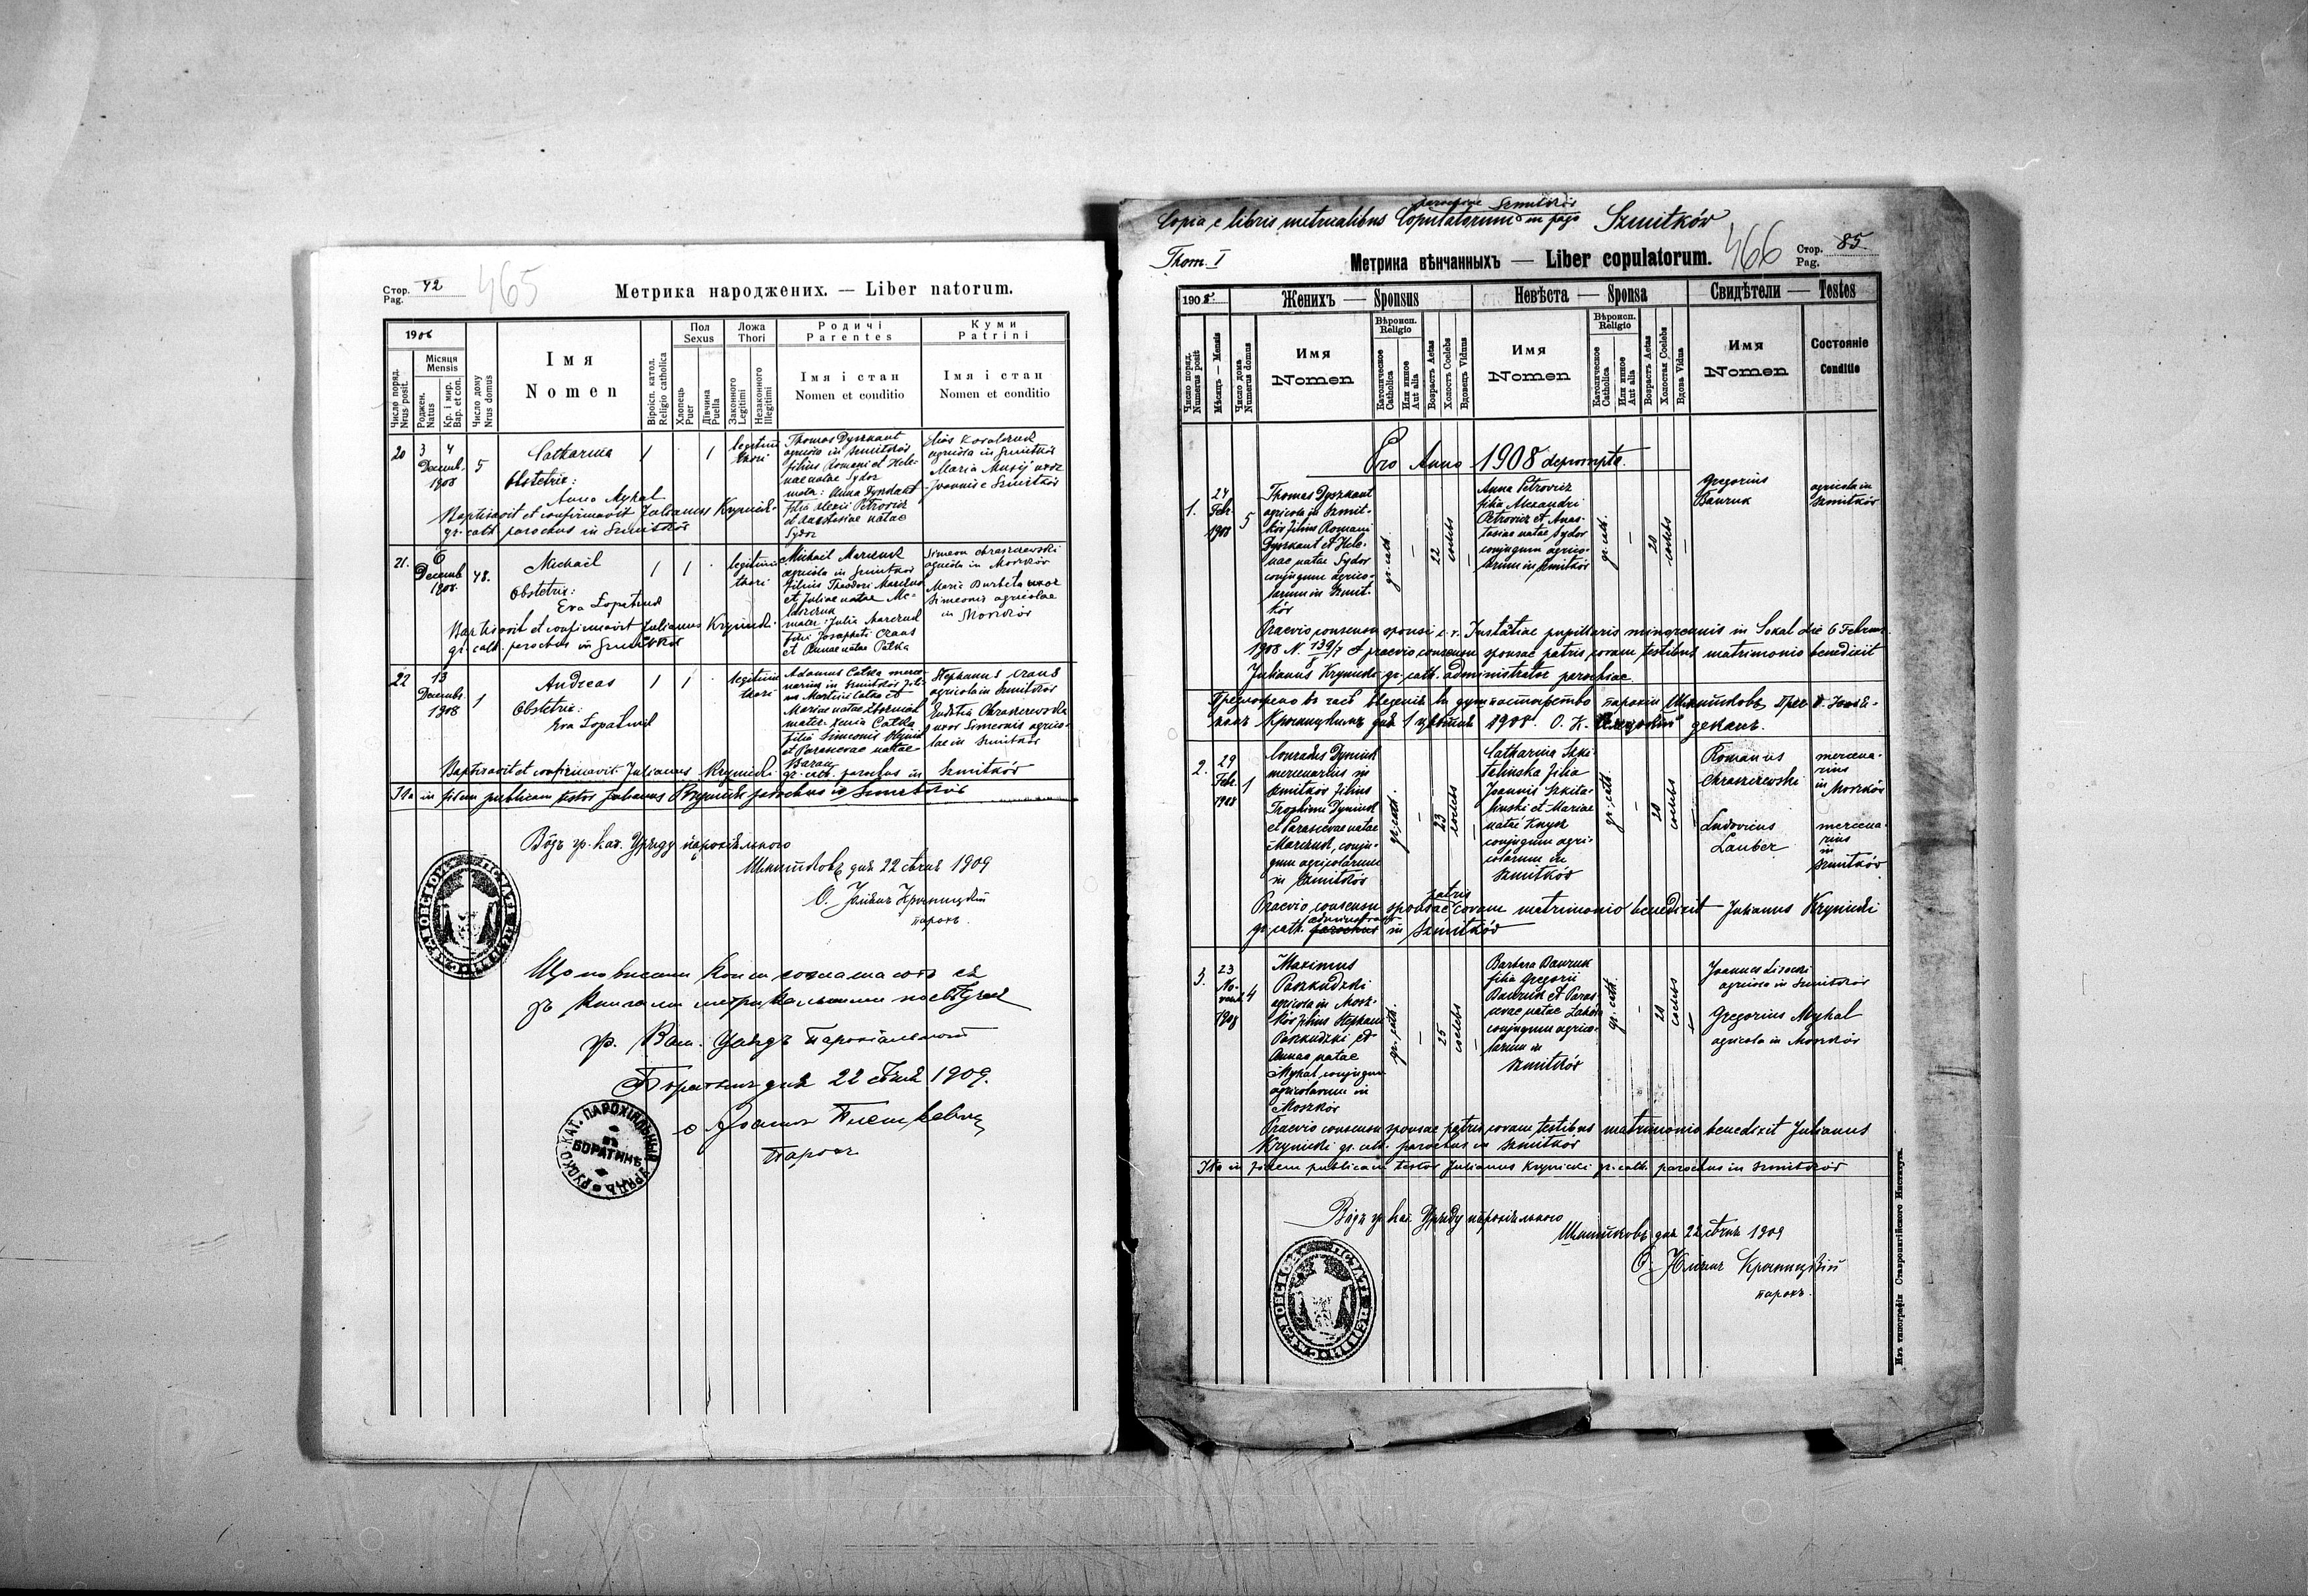 Стор. 42
Pag.
465
Метрика народжених. — Liber natorum.
1908
Число поряд. Nrus posit.
Місяця Mensis
Роджен. Natus
Кр. і мир. Bap. et con.
Число дому Nrus domus
Імя
Nomen
Віроісп. катол. Religio catholica
Пол
Sexus
Хлопець Puer
Дівчина Puella
Ложа
Thori
Законного Legitimi
Незаконного Illegitimi
Родичі
Parentes
Імя і стан
Nomen et conditio
Куми
Patrini
Імя і стан
Nomen et conditio
20
3 4
Decemb.
1908
5
Catharina
Obstetrix:
Anna Mykal
1
1
legitimi
thori
Thomas Dyszkant
agricola in Szmitków
filius Romani et Hele-
nae natae Sydor
mater: Anna Dyszkant
filia Alexii Petrovicz
et Anastasiae natae
Sydor
Elias Kovalczuk
agricola in Szmitków
Maria Musij uxor
Joannis e Szmitków
Baptisavit et confirmavit Julianus Krynicki
gr. cath. parochus in Szmitków
21.
6
Decemb.
1908.
48.
Michael
Obstetrix:
Eva Lopatniuk
1
1
legitimi
thori
Michail Marczuk
agricola in Szmitków
filius Theodori Marczuk
et Juliae natae
mater: Julia Marczuk
filia Josaphati Craus
et Annae natae Patka
Simeon Chraszczewski
agricola in Moszków
Maria Burbela uxor
Simeonis agricolae
in Moszków
Baptisavit et confirmavit Julianus Krynicki
gr. cath. parochus in Szmitków
22
13
Decembr.
1908
1
Andreas
Obstetrix:
Eva Lopatniuk
1
1
legitimi
thori
Adamus Catka merce-
narius in Szmitków fili-
us Martini Catka et
Mariae natae
mater: Xenia Catka
filia Simeonis
et Parascevae natae
Baran
Stephanus Craus
agricola in Szmitków
Eudokia Chraszczewska
uxor Simeonis agrico-
lae in Szmitków
Baptisavit et confirmavit Julianus Krynicki gr. cath. parochus in Szmitków
Ita in fidem publicam testor Julianus Krynicki parochus in Szmitków
Вôдъ гр. кат. Уряду парохіяльного
Шмитковъ дня 22 сѣчня 1909
О. Юліянъ Крыницкій
парохъ.
Що повысши копіи согласаются ся
зъ книгами метрикальными посвѣдчає
гр. кат. Урядъ парохіяльный
Боратинъ дня 22 сѣчня 1909.
о Іоаннъ
парохъ
РУСКО-КАТ. ПАРОХІЯЛЬНЫЙ УРЯДЪ
въ
БОРАТИНѢ
Copia e libris metricalibus Copulatorum parochiae Szmitków in pago Szmitków
Thom. I
466
Метрика вѣнчанныхъ — Liber copulatorum.
Стор. 85.
Pag.
1908.
Женихъ — Sponsus
Невѣста — Sponsa
Свидѣтели — Testes
Число поряд. Numerus posit
Мѣсяцъ — Mensis
Число дома Numerus domus
Имя
Nomen
Вѣроисп.
Religio
Католическое Catholica
Или иное Aut alia
Возрастъ Aetas
Холостъ Coelebs
Вдовецъ Viduus
Имя
Nomen
Вѣроисп.
Religio
Католическое Catholica
Или иное Aut alia
Возрастъ Aetas
Холостая Coelebs
Вдова Vidua
Имя
Nomen
Состояніе
Conditio
Pro Anno 1908 deprompta.
1.
24
Febr.
1908
5
Thomas Dyszkant
agricola in Szmit-
ków filius Romani
Dyszkant et Hele-
nae natae Sydor
conjugum agrico-
larum in Szmit-
ków
gr. cath.
22
coelebs
Anna Petrovicz
filia Alexandri
Petrovicz et Anas-
tasiae natae Sydor
conjugum agrico-
larum in Szmitków
gr. cath.
20
coelebs
Gregorius
Bauruk
agricola in
Szmitków
Praevio consensu sponsi c. r. Instantiae pupillaris minorennis in Sokal die 6 Februar
1908 N. 139/7 8 et praevio consensu sponsae patris coram testibus matrimonio benedixit
Julianus Krynicki gr. cath. administrator parochiae.
Предложено въ часѣ введенія въ душпастырство парохіи Шмитковъ
Крыницкимъ дня 1 цвѣтня 1908. О. К. деканъ.
2.
29
Febr.
1908
1
Conradus Dyniuk
mercenarius in
Szmitków filius
Trophimi Dyniuk
et Parascevae natae
Marczuk, conju-
gum agricolarum
in Szmitków
gr. cath.
23
coelebs
Catharina Szki-
talinska filia
Joannis Szkita-
linski et Mariae
natae Knysz
conjugum agri-
colarum in
Szmitków
gr. cath.
20
coelebs
Romanus
Chraszczewski
mercena-
rius
in Moszków
Ludovicus
Lauber
mercena-
rius
in
Szmitków
Praevio consensu sponsae patris coram matrimonio benedixit Julianus Krynicki
gr. cath. administrator parochus in Szmitków
3.
23
No-
vemb.
1908
4
Maximus
Paszkudzki
agricola in Mosz-
ków filius Stephani
Paszkudzki et
Annae natae
Mykal, conjugum
agricolarum in
Moszków
gr. cath.
25
coelebs
Barbara Bauruk
filia Gregorii
Bauruk et Paras-
cevae natae
conjugum agrico-
larum in
Szmitków
gr. cath.
20
coelebs
Joannes Lisocki
agricola in Szmitków
Gregorius Mykal
agricola in Moszków
Praevio consensu sponsae patris coram testibus matrimonio benedixit Julianus
Krynicki gr. cath. parochus in Szmitków
Ita in fidem publicam testor Julianus Krynicki gr. cath. parochus in Szmitków
Вôдъ гр. кат. Уряду парохіяльного
Шмитковъ дня 22 сѣчня 1909
О. Юліянъ Крыницкій
парохъ.
Изъ типографіи Ставропигійского Института.